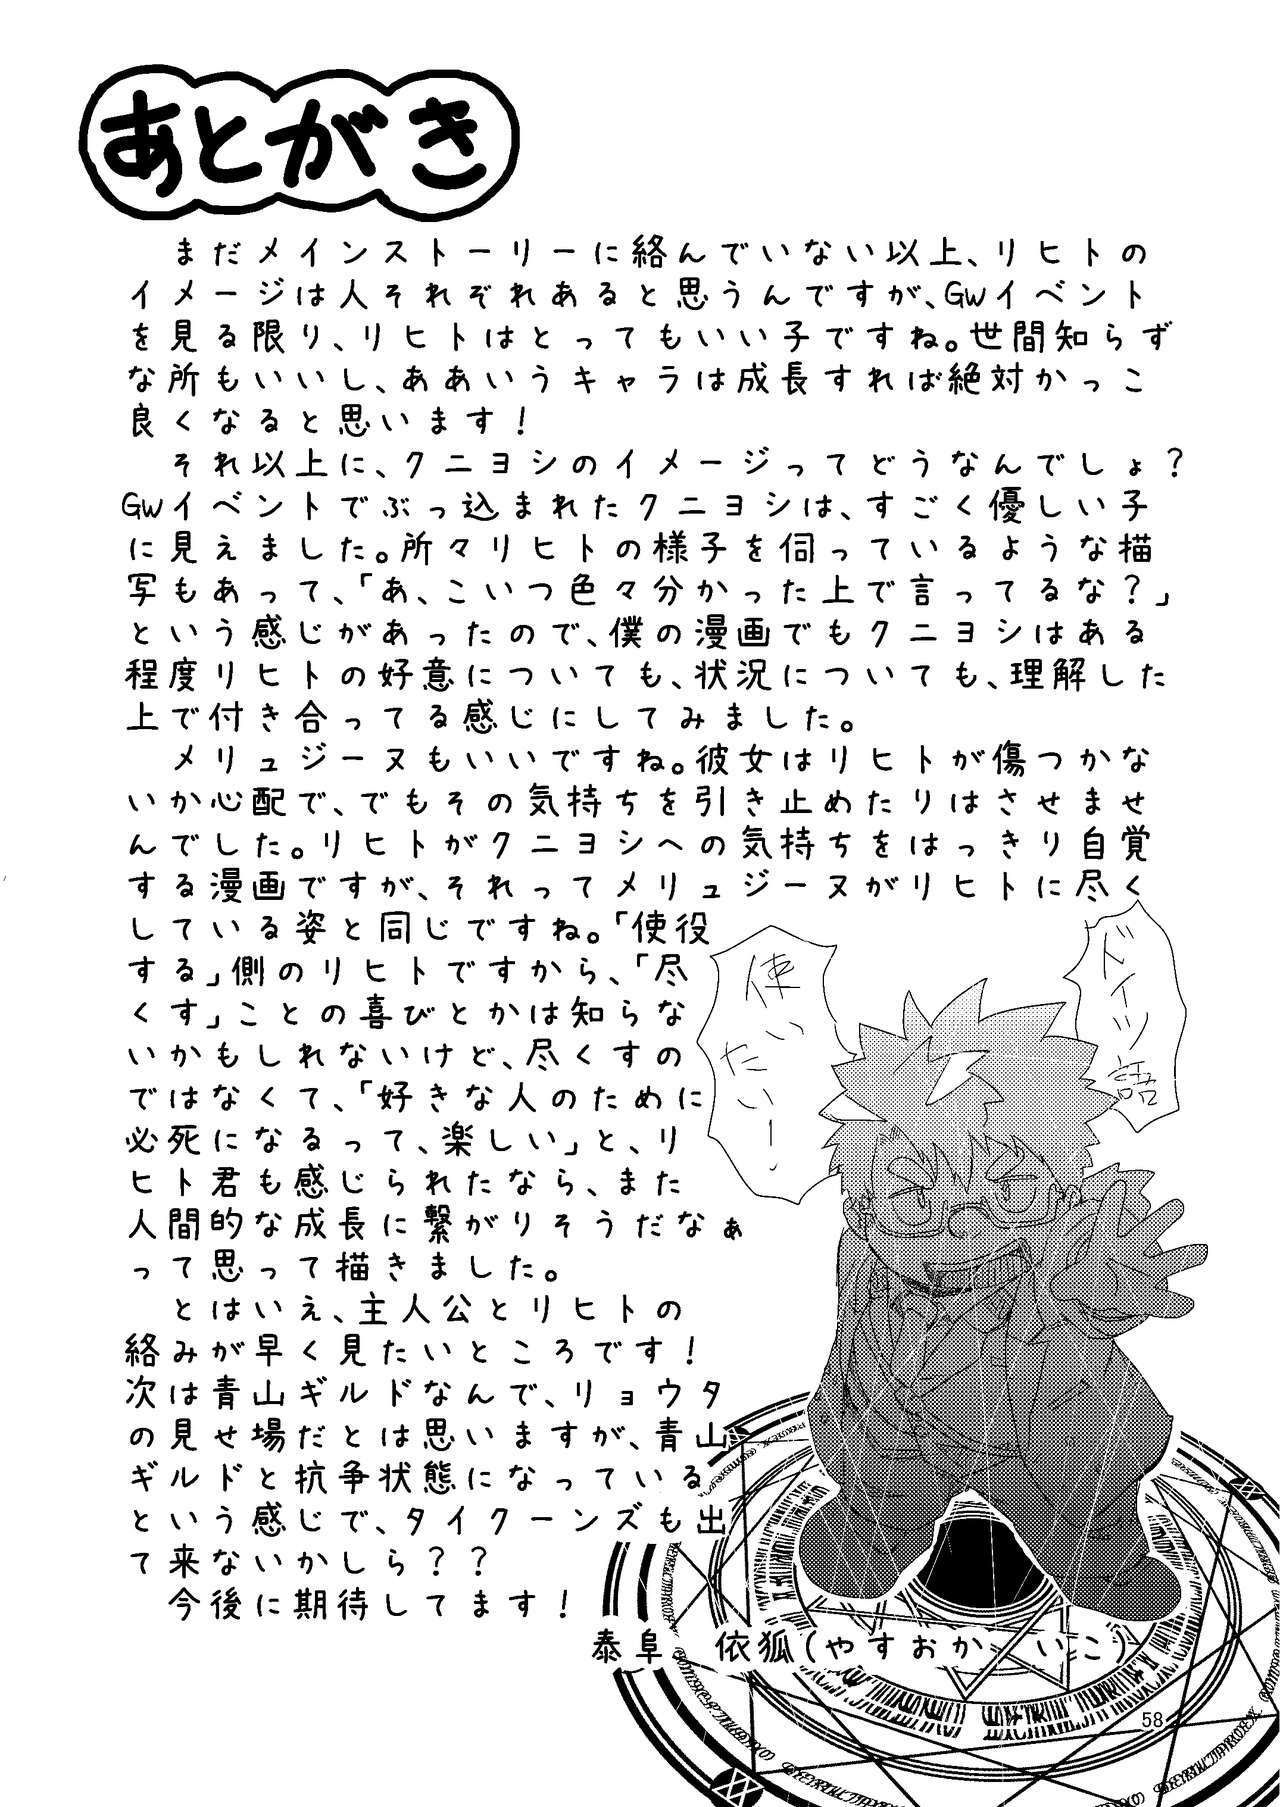 あとがき
　まだメインストーリーに絡んでいない以上、リヒトの
イメージは人それぞれあると思うんですが、GWイベント
を見る限り、リヒトはとってもいい子ですね。世間知らず
な所もいいし、ああいうキャラは成長すれば絶対かっこ
良くなると思います！
　それ以上に、クニヨシのイメージってどうなんでしょ？
GWイベントでぶっ込まれたクニヨシは、すごく優しい子
に見えました。所々リヒトの様子を伺っているような描
写もあって、「あ、こいつ色々分かった上で言ってるな？」
という感じがあったので、僕の漫画でもクニヨシはある
程度リヒトの好意についても、状況についても、理解した
上で付き合ってる感じにしてみました。
　メリュジーヌもいいですね。彼女はリヒトが傷つかな
いか心配で、でもその気持ちを引き止めたりはさせませ
んでした。リヒトがクニヨシへの気持ちをはっきり自覚
する漫画ですが、それってメリュジーヌがリヒトに尽く
している姿と同じですね。「使役
する」側のリヒトですから、「尽
くす」ことの喜びとかは知らな
いかもしれないけど、尽くすの
ではなくて、「好きな人のために
必死になるって、楽しい」と、リ
ヒト君も感じられたなら、また
人間的な成長に繋がりそうだなぁ
って思って描きました。
　とはいえ、主人公とリヒトの
絡みが早く見たいところです！
次は青山ギルドなんで、リョウタ
の見せ場だとは思いますが、青山
ギルドと抗争状態になっている
という感じで、タイクーンズも出
て来ないかしら？？
　今後に期待してます！
泰阜　依狐（やすおか　いこ）
ドイツ語
使いたいー
58